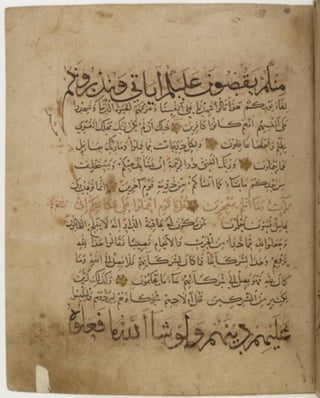 منكم يقصون عليكم آياتي وينذرونكم
لقاء يومكم هذا قالوا شهدنا على أنفسنا وغرتهم الحيوة الدنيا وشهدوا
على أنفسهم أنهم كانوا كافرين ذلك أن لم يكن ربك مهلك القرى
بظلم وأهلها غافلون ولكل درجات مما عملوا وما ربك بغافل
عما يعملون وربك الغني ذو الرحمة إن يشأ يذهبكم ويستخلف
من بعدكم ما يشاء كما أنشأكم من ذرية قوم آخرين إنما توعدون
لآت وما أنتم بمعجزين قل يا قوم اعملوا على مكانتكم إني
عامل فسوف تعلمون من تكون له عاقبة الدار إنه لا يفلح الظالمون
وجعلوا لله مما ذرأ من الحرث والأنعام نصيبا فقالوا هذا لله
بزعمهم وهذا لشركائنا فما كان لشركائهم فلا يصل إلى الله وما
كان لله فهو يصل إلى شركائهم ساء ما يحكمون وكذلك زين
لكثير من المشركين قتل أولادهم شركاؤهم ليردوهم وليلبسوا
عليهم دينهم ولو شاء الله ما فعلوه